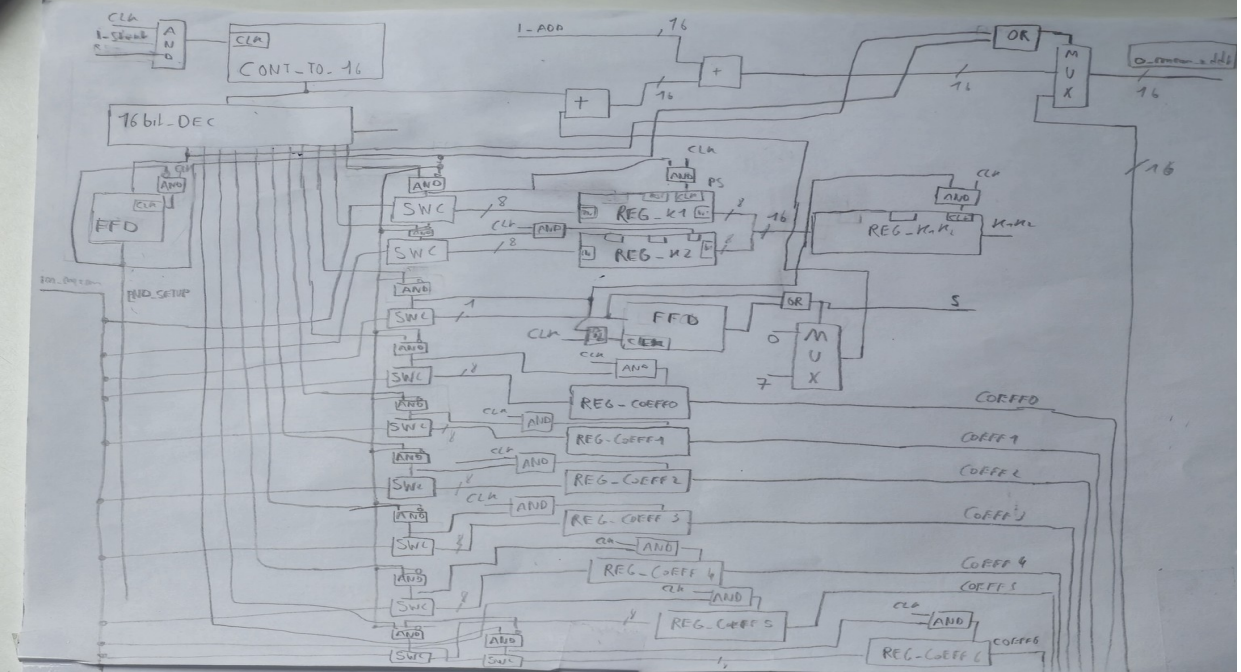 CLK
AND
CLK
CONT_TO_16
I_ADD
16
+
16
+
16
OR
MUX
16
16
16bit_DEC
CLK
AND
CLK
FFD
END_SETUP
AND
SWC
8
CLK
AND
CLK
PS
REG_K1
8
16
AND
SWC
8
CLK
AND
REG_K2
8
CLK
AND
CLK
REG_K1K2
K1K2
AND
SWC
1
CLK
FFD
CLK
OR
S
0
7
MUX
AND
SWC
8
CLK
AND
REG_COEFF0
COEFF0
AND
SWC
8
CLK
AND
REG_COEFF1
COEFF1
AND
SWC
8
CLK
AND
REG_COEFF2
COEFF2
AND
SWC
8
CLK
AND
REG_COEFF3
COEFF3
AND
SWC
8
CLK
AND
REG_COEFF4
COEFF4
AND
SWC
8
CLK
AND
REG_COEFF5
COEFF5
AND
SWC
CLK
AND
REG_COEFF6
COEFF6